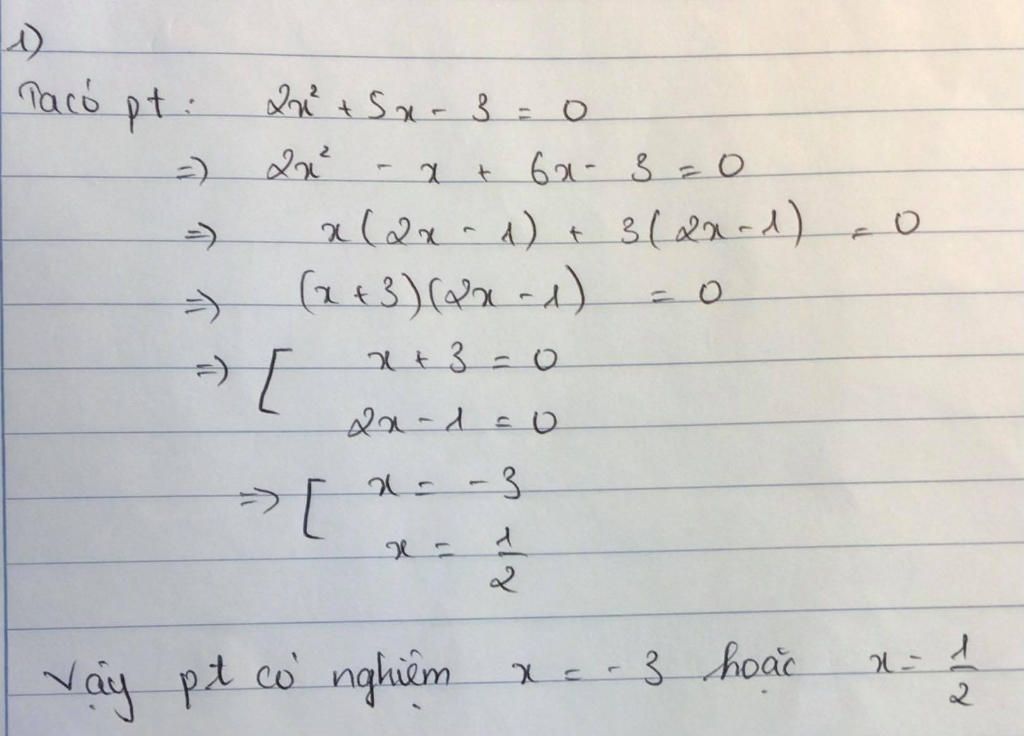 1)
Ta có pt: 2x² + 5x - 3 = 0
=> 2x² - x + 6x - 3 = 0
=> x(2x - 1) + 3(2x - 1) = 0
=> (x + 3)(2x - 1) = 0
=> [ x + 3 = 0
2x - 1 = 0
=> [ x = -3
x = 1/2
Vậy pt có nghiệm x = -3 hoặc x = 1/2